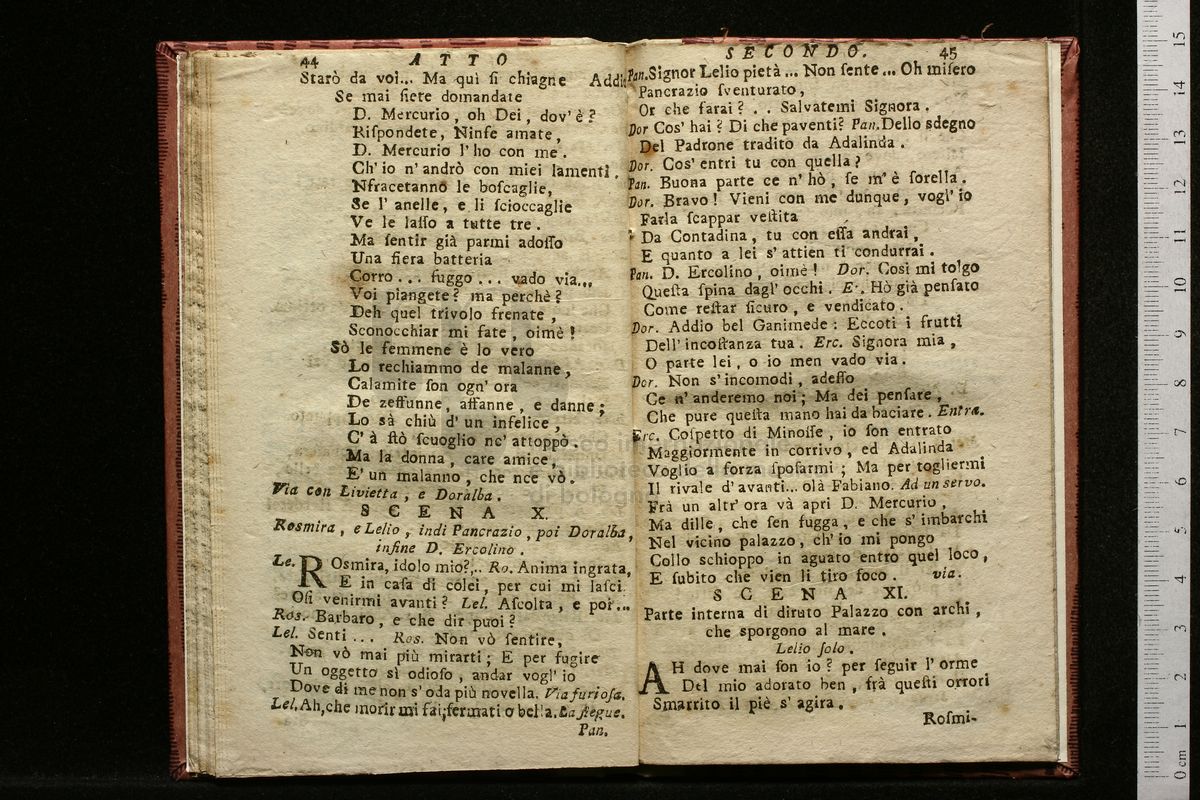 44 ATTO
Starò da voi... Ma quì ſi chiagne Addio
Se mai ſiete domandate
D. Mercurio, oh Dei, dov' è?
Riſpondete, Ninfe amate,
D. Mercurio l' ho con me.
Ch' io n' andrò con miei lamenti.
Nfracetanno le boſcaglie,
Se l' anelle, e li ſcioccaglie
Ve le laſſo a tutte tre.
Ma ſentir già parmi adoſſo
Una fiera batteria
Corro... fuggo... vado via...
Voi piangete? ma perchè?
Deh quel trivolo frenate,
Sconocchiar mi fate, oimè!
Sò le femmene è lo vero
Lo rechiammo de malanne,
Calamite ſon ogn' ora
De zeffunne, affanne, e danne;
Lo sà chiù d' un infelice,
C' à ſtò ſcuoglio nc' attoppò.
Ma la donna, care amice,
E' un malanno, che nce vò.
Via con Livietta, e Doralba.
SCENA X.
Roſmira, e Lelio, indi Pancrazio, poi Doralba,
infine D. Ercolino.
Le. ROſmira, idolo mio?... Ro. Anima ingrata,
E in caſa di colei, per cui mi laſci
Oſi venirmi avanti? Lel. Aſcolta, e poi...
Ros. Barbaro, e che dir puoi?
Lel. Senti... Ros. Non vò ſentire,
Non vò mai più mirarti; E per fugire
Un oggetto sì odioſo, andar vogl' io
Dove di me non s' oda più novella. Via furioſa.
Lel. Ah, che morir mi fai; fermati o bella. La ſiegue.
Pan.
SECONDO. 45
Pan. Signor Lelio pietà... Non ſente... Oh miſero
Pancrazio ſventurato,
Or che farai? . . Salvatemi Signora.
Dor Cos' hai? Di che paventi? Pan. Dello sdegno
Del Padrone tradito da Adalinda.
Dor. Cos' entri tu con quella?
Pan. Buona parte ce n' hò, ſe m' è ſorella.
Dor. Bravo! Vieni con me dunque, vogl' io
Farla ſcappar veſtita
Da Contadina, tu con eſſa andrai,
E quanto a lei s' attien ti condurrai.
Pan. D. Ercolino, oimè! Dor. Così mi tolgo
Queſta ſpina dagl' occhi. Er. Hò già penſato
Come reſtar ſicuro, e vendicato.
Dor. Addio bel Ganimede: Eccoti i frutti
Dell' incoſtanza tua. Erc. Signora mia,
O parte lei, o io men vado via.
Dor. Non s' incomodi, adeſſo
Ce n' anderemo noi; Ma dei penſare,
Che pure queſta mano hai da baciare. Entra.
Erc. Coſpetto di Minoſſe, io ſon entrato
Maggiormente in corrivo, ed Adalinda
Voglio a forza ſpoſarmi; Ma per togliermi
Il rivale d' avanti... olà Fabiano. Ad un servo.
Frà un altr' ora và apri D. Mercurio,
Ma dille, che ſen fugga, e che s' imbarchi
Nel vicino palazzo, ch' io mi pongo
Collo schioppo in aguato entro quel loco,
E ſubito che vien li tiro foco. via.
SCENA XI.
Parte interna di diruto Palazzo con archi,
che sporgono al mare.
Lelio ſolo.
AH dove mai ſon io? per ſeguir l' orme
Del mio adorato ben, frà queſti orrori
Smarrito il piè s' agira.
Roſmi-